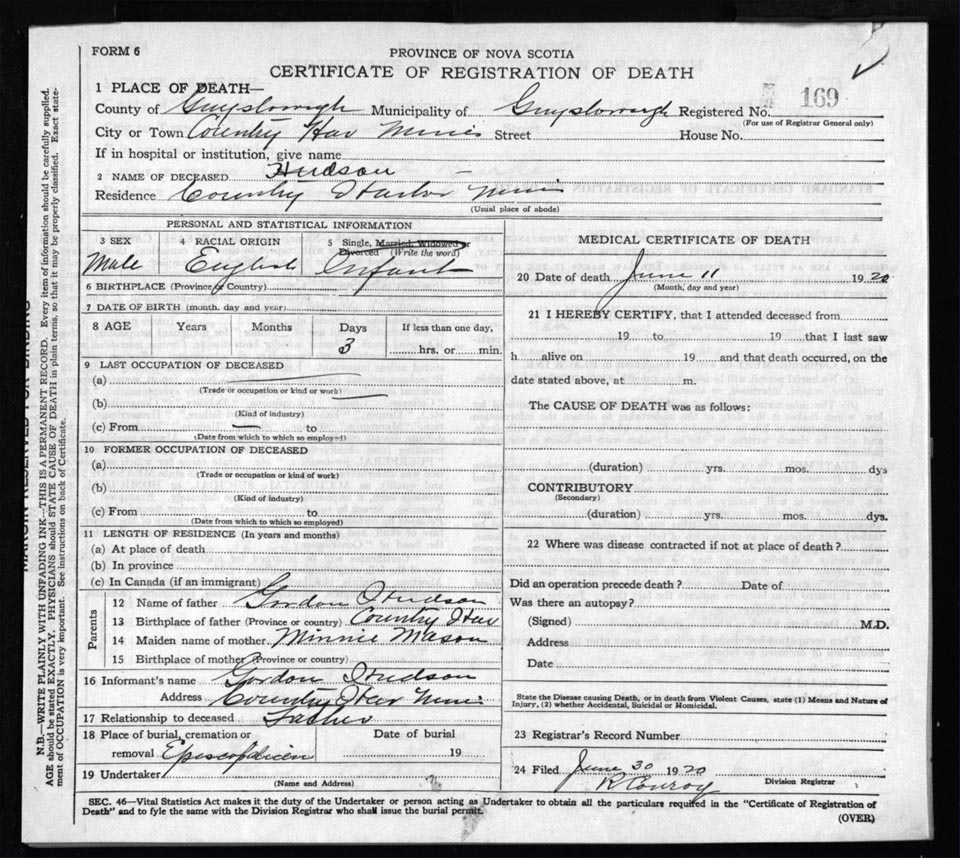 FORM 6
PROVINCE OF NOVA SCOTIA
CERTIFICATE OF REGISTRATION OF DEATH
1 PLACE OF DEATH—
County of Guysborough Municipality of Guysborough Registered No. 169
(For use of Registrar General only)
City or Town Country Har Mines Street House No.
If in hospital or institution, give name
2 NAME OF DECEASED Hudson –
Residence Country Harbor Mines
(Usual place of abode)
PERSONAL AND STATISTICAL INFORMATION
3 SEX
Male
4 RACIAL ORIGIN
English
5 Single, Married, Widowed or
Divorced (Write the word)
Infant
6 BIRTHPLACE (Province or Country)
7 DATE OF BIRTH (month, day and year)
8 AGE Years Months Days If less than one day,
3 hrs. or min.
9 LAST OCCUPATION OF DECEASED
(a)
(Trade or occupation or kind or work)
(b)
(Kind of industry)
(c) From — to
(Date from which to which so employed)
10 FORMER OCCUPATION OF DECEASED
(a)
(Trade or occupation or kind of work)
(b)
(Kind of industry)
(c) From to
(Date from which to which so employed)
11 LENGTH OF RESIDENCE (In years and months)
(a) At place of death
(b) In province
(c) In Canada (if an immigrant)
Parents
12 Name of father Gordon Hudson
13 Birthplace of father (Province or country) Country Har
14 Maiden name of mother Minnie Mason
15 Birthplace of mother (Province or country)
16 Informant's name Gordon Hudson
Address Country Har Mines
17 Relationship to deceased Father
18 Place of burial, cremation or Date of burial
removal Episcopalian 19
19 Undertaker
(Name and Address)
MEDICAL CERTIFICATE OF DEATH
20 Date of death June 11 1920
(Month, day and year)
21 I HEREBY CERTIFY, that I attended deceased from
19 to 19 that I last saw
h alive on 19 and that death occurred, on the
date stated above, at m.
The CAUSE OF DEATH was as follows:
(duration) yrs. mos. dys
CONTRIBUTORY
(Secondary)
(duration) yrs. mos. dys.
22 Where was disease contracted if not at place of death?
Did an operation precede death? Date of
Was there an autopsy?
(Signed) M.D.
Address
Date
State the Disease causing Death, or in death from Violent Causes, state (1) Means and Nature of
Injury, (2) whether Accidental, Suicidal or Homicidal.
23 Registrar's Record Number
24 Filed June 30 1920
R Conroy
Division Registrar
SEC. 46—Vital Statistics Act makes it the duty of the Undertaker or person acting as Undertaker to obtain all the particulars required in the "Certificate of Registration of
Death" and to fyle the same with the Division Registrar who shall issue the burial permit.
(OVER)
MARGIN RESERVED FOR BINDING
N.B.—WRITE PLAINLY WITH UNFADING INK—THIS IS A PERMANENT RECORD. Every item of information should be carefully supplied.
AGE should be stated EXACTLY. PHYSICIANS should STATE CAUSE OF DEATH in plain terms, so that it may be properly classified. Exact state-
ment of OCCUPATION is very important. See instructions on back of Certificate.